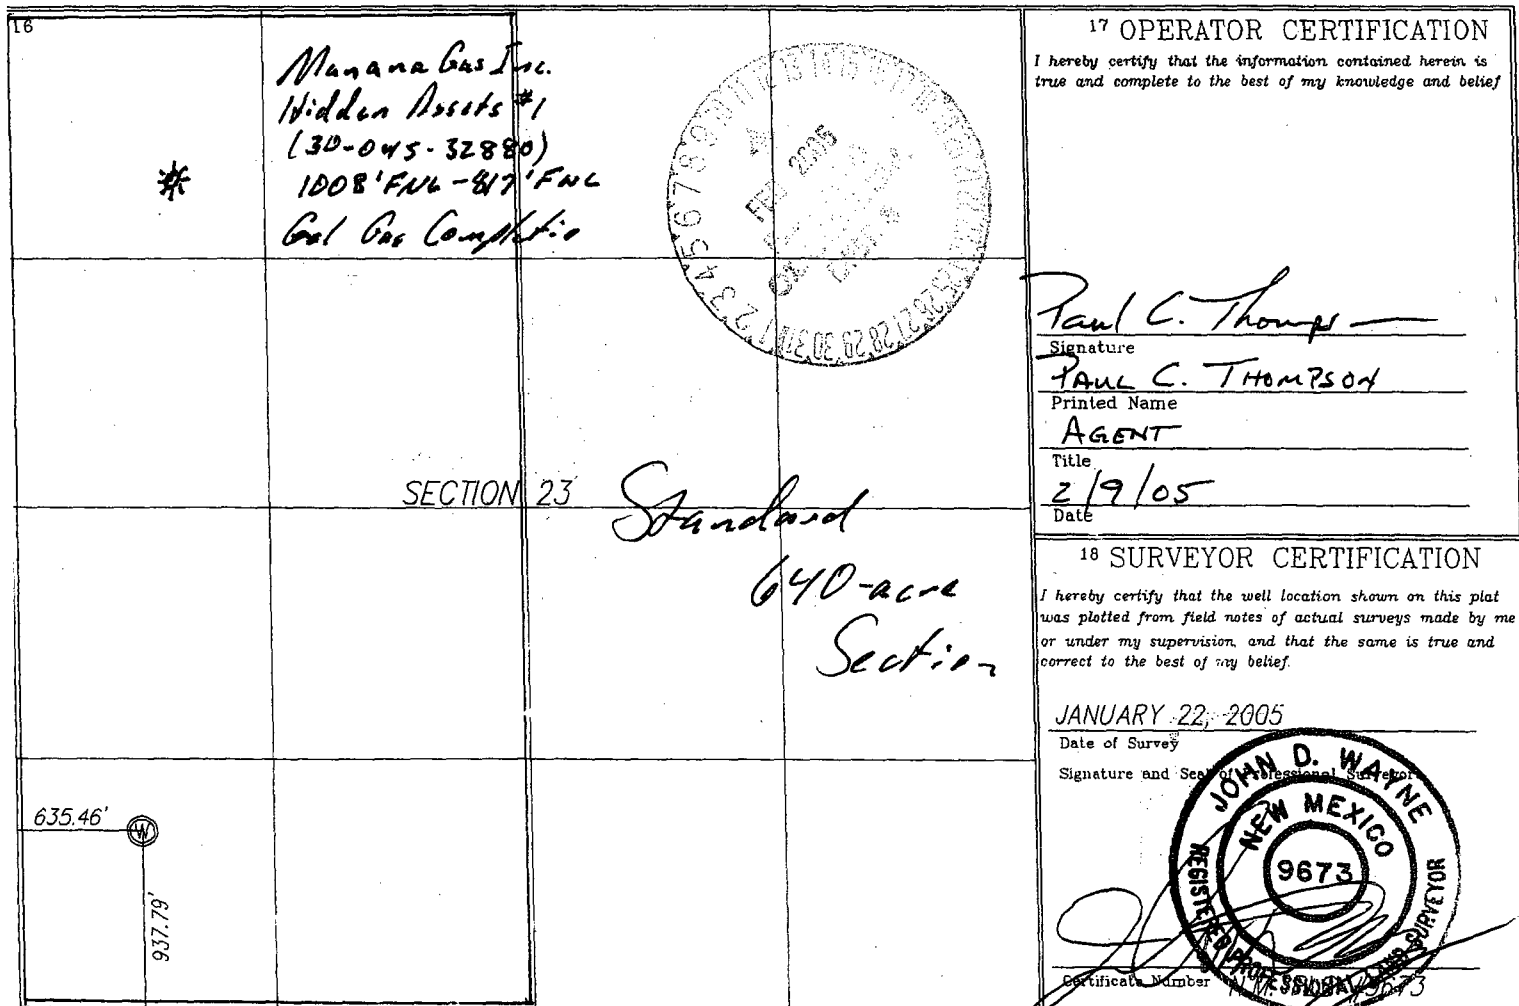 16
Manana Gas Inc.
Hidden Assets #1
(30-045-32880)
1008' FNL - 817' FNL
Gal Gas Completio
FEB 2005
1 2 3 4 5 6 7 8 9 10 11 12 13 14 15
25 26 27 28 29 30 31
SECTION 23
Standard
640-acre
Section
635.46'
W
937.79'
17 OPERATOR CERTIFICATION
I hereby certify that the information contained herein is
true and complete to the best of my knowledge and belief
Paul C. Thomps
Signature
PAUL C. THOMPSON
Printed Name
AGENT
Title
2/9/05
Date
18 SURVEYOR CERTIFICATION
I hereby certify that the well location shown on this plat
was plotted from field notes of actual surveys made by me
or under my supervision, and that the same is true and
correct to the best of my belief.
JANUARY 22, 2005
Date of Survey
Signature and Seal of Professional Surveyor
JOHN D. WAYNE
NEW MEXICO
9673
REGISTERED PROFESSIONAL LAND SURVEYOR
Certificate Number
9673